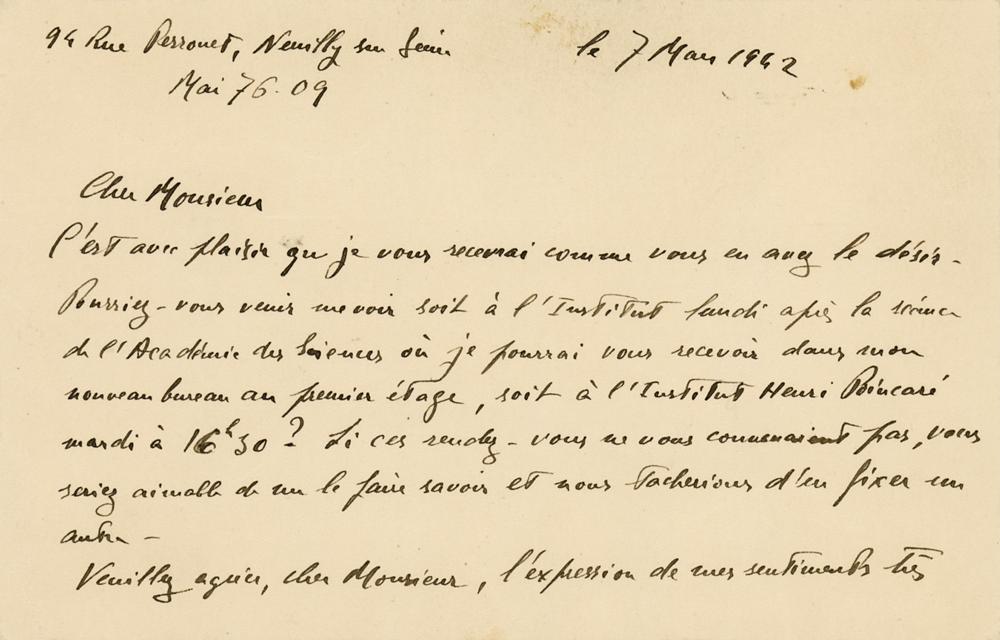 94 Rue Perronet, Neuilly sur Seine
le 7 Mars 1942
Mai 76.09
Cher Monsieur
C'est avec plaisir que je vous recevrai comme vous en avez le désir -
Pourriez-vous venir me voir soit à l'Institut lundi après la séance
de l'Académie des Sciences où je pourrai vous recevoir dans mon
nouveau bureau au premier étage, soit à l'Institut Henri Poincaré
mardi à 16h30 ? Si ces rendez-vous ne vous convenaient pas, vous
seriez aimable de me le faire savoir et nous tacherions d'en fixer un
autre -
Veuillez agréer, cher Monsieur, l'expression de mes sentiments très